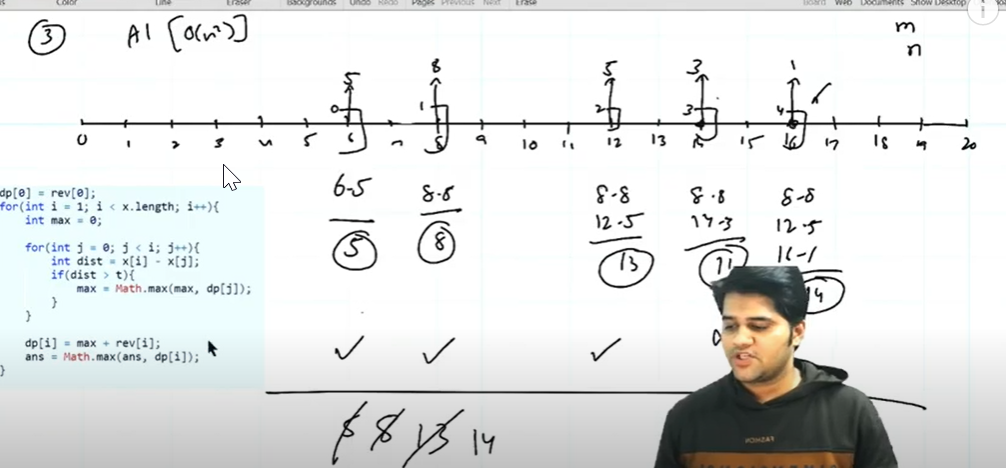 Color Line Eraser Backgrounds Undo Redo Pages Previous Next Erase Board Web Documents Show Desktop
3 A1 [O(n²)] m
n
5 8 5 3 1
0 1 2 3 4
0 1 2 3 4 5 6 7 8 9 10 11 12 13 14 15 16 17 18 19 20
dp[0] = rev[0];
for(int i = 1; i < x.length; i++){
int max = 0;
for(int j = 0; j < i; j++){
int dist = x[i] - x[j];
if(dist > t){
max = Math.max(max, dp[j]);
}
}
dp[i] = max + rev[i];
ans = Math.max(ans, dp[i]);
}
6-5 8-8 8-8 8-8 8-8
12-5 14-3 12-5
16-1
5 8 13 11 14
5 8 13 14